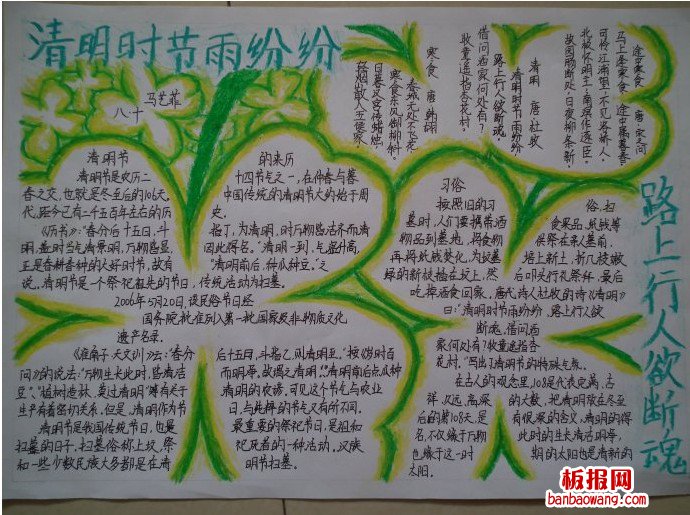 清明时节雨纷纷
八、十 马艺菲
寒食 唐 韩翃
春城无处不飞花，
寒食东风御柳斜。
日暮汉宫传蜡烛，
轻烟散入五侯家。
清明 唐 杜牧
清明时节雨纷纷，
路上行人欲断魂。
借问酒家何处有？
牧童遥指杏花村。
途中寒食 唐 宋之问
马上逢寒食，途中属暮春。
可怜江浦望，不见洛桥人。
北极怀明主，南溟作逐臣。
故园肠断处，日夜柳条新。
路上行人欲断魂
清明节
清明节是农历二
春之交，也就是冬至后的106天，
代，距今已有二千五百年左右的历
《历书》：“春分后十五日，斗
明，盖时当气清景明，万物皆显，
正是春耕春种的大好时节，故有
说。清明节是一个祭祀祖先的节日，
的来历
十四节气之一，在仲春与暮
中国传统的清明节大约始于周
史。
指丁，为清明，时万物皆洁齐而清
因此得名。”清明一到，气温升高，
“清明前后，种瓜种豆。”之
传统活动为扫墓。
2006年5月20日，该民俗节日经
国务院批准列入第一批国家级非物质文化
遗产名录。
《淮南子·天文训》云：“春分
问》的说法：“万物生长此时，皆清洁
豆”、“植树造林，莫过清明”
生产有着密切关系。但是，清明作为节
清明节是我国传统节日，也是
扫墓的日子。扫墓俗称上坟，祭
和一些少数民族大多都是在清
后十五日，斗指乙，则清明至。”按《岁时百
而明净。故谓之清明。”“清明前后点瓜种
清明的农谚。可见这个节气与农业
日，与纯粹的节气又有所不同。
最重要的祭祀节日，是祖和
祀死者的一种活动。汉族
明节扫墓。
习俗
按照旧的习
墓时，人们要携带酒
物品到墓地，将食物
再将纸钱焚化，为坟墓
绿的新枝插在坟上，然
吃掉酒食回家。
俗，扫
食果品、纸钱等
供祭在亲人墓前，
培上新土，折几枝嫩
后叩头行礼祭拜，最后
唐代诗人杜牧的诗《清明》
曰：“清明时节雨纷纷，路上行人欲
断魂。借问酒
家何处有？牧童遥指杏
花村。”写出了清明节的特殊气氛。
在古人的观念里，108是代表完满、吉
祥、久远、高深
后的第108天，是
名，不仅缘于万物
也缘于这一时
太阳。
的大数。把清明放在冬至
有很深的含义，清明的得
此时的生长清洁明净，
期的太阳也是清新的
板报网
banbaowang.com